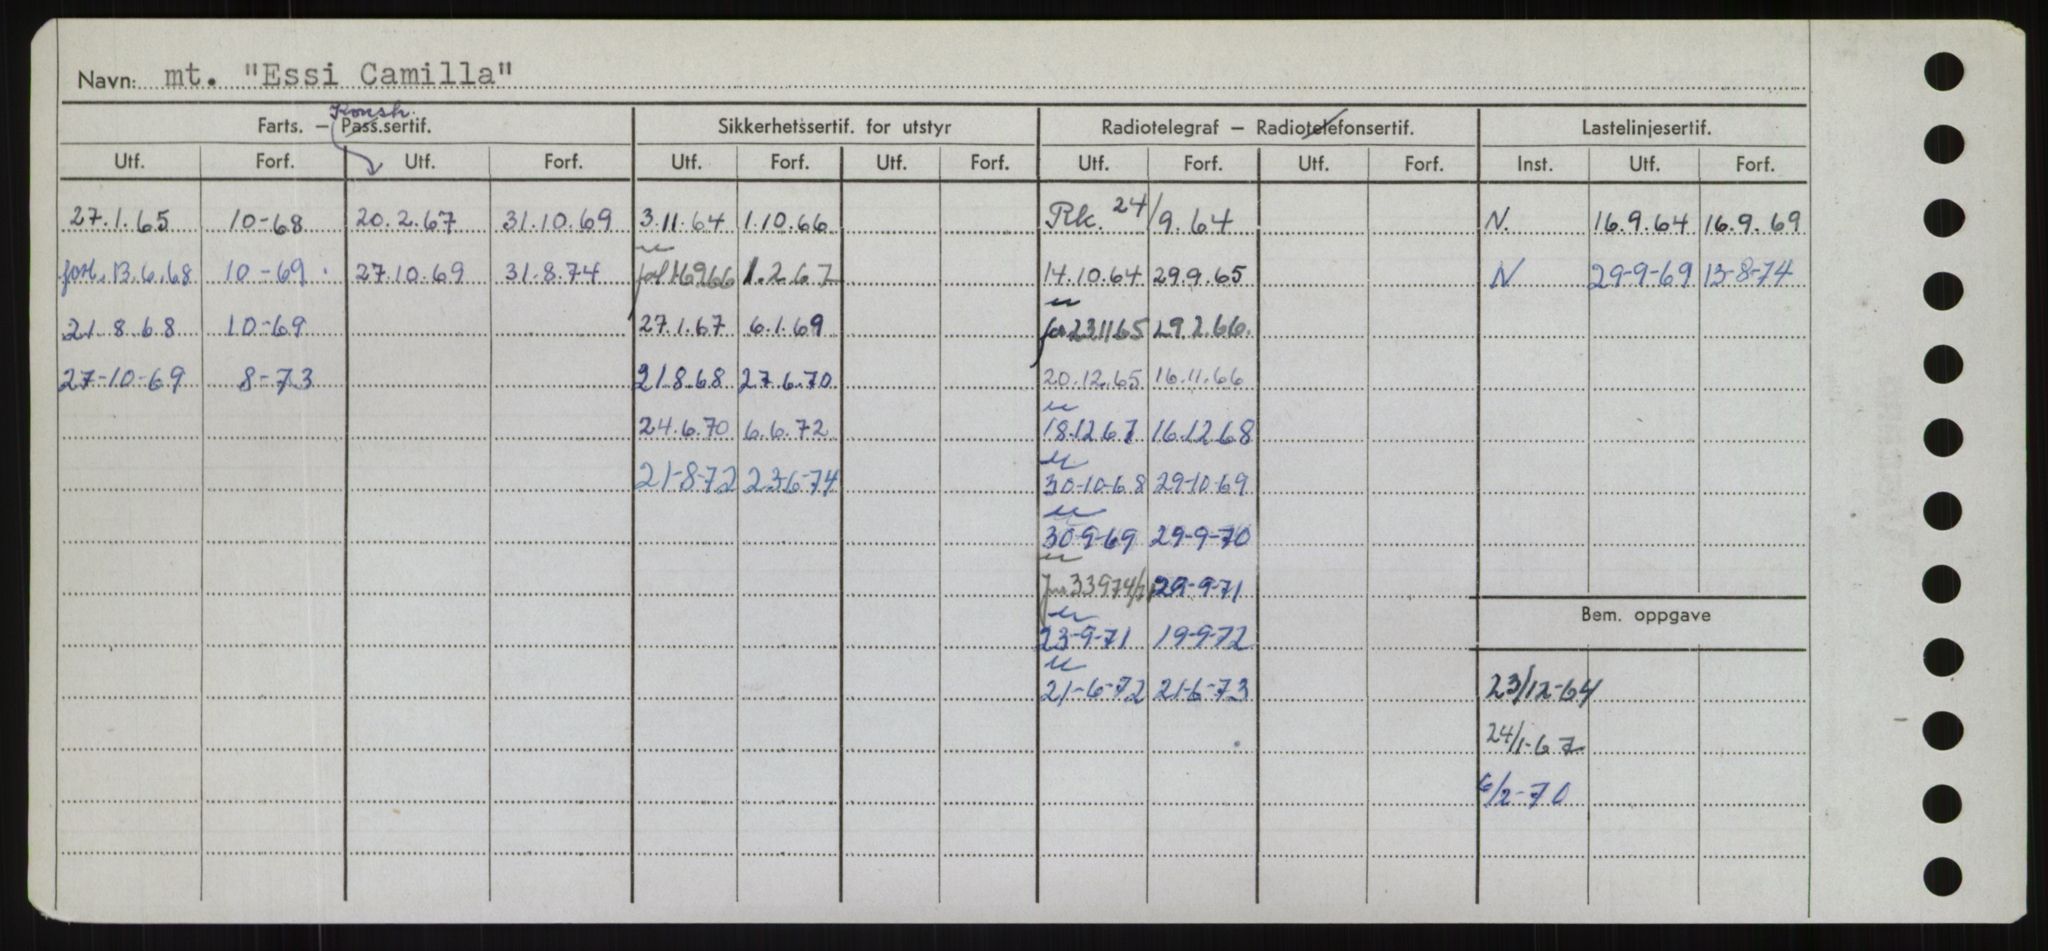 Navn: mt. "Essi Camilla"
Konstr.
Farts. — Pass.sertif. Sikkerhetssertif. for utstyr Radiotelegraf — Radiotelefonsertif. Lastelinjesertif.
Utf. Forf. Utf. Forf. Utf. Forf. Utf. Forf. Utf. Forf. Utf. Forf. Inst. Utf. Forf.
27.1.65 10-68 20.2.67 31.10.69 3.11.64 1.10.66 Rk. 24/9.64 N. 16.9.64 16.9.69
forl. 13.6.68 10-69 27.10.69 31.8.74 forl 16966 1.2.67 14.10.64 29.9.65 N 29-9-69 13-8-74
21.8.68 10-69 27.1.67 6.1.69 231165 29.2.66.
27-10-69 8-73 21.8.68 27.6.70 20.12.65 16.11.66
24.6.70 6.6.72 18.12.67 16.12.68
21-8-72 23-6-74 30-10-68 29-10-69
30-9-69 29-9-70
29-9-71
Bem. oppgave
23-9-71 19-9-72
21-6-72 21-6-73 23/12-64
24/1-67
6/2-70